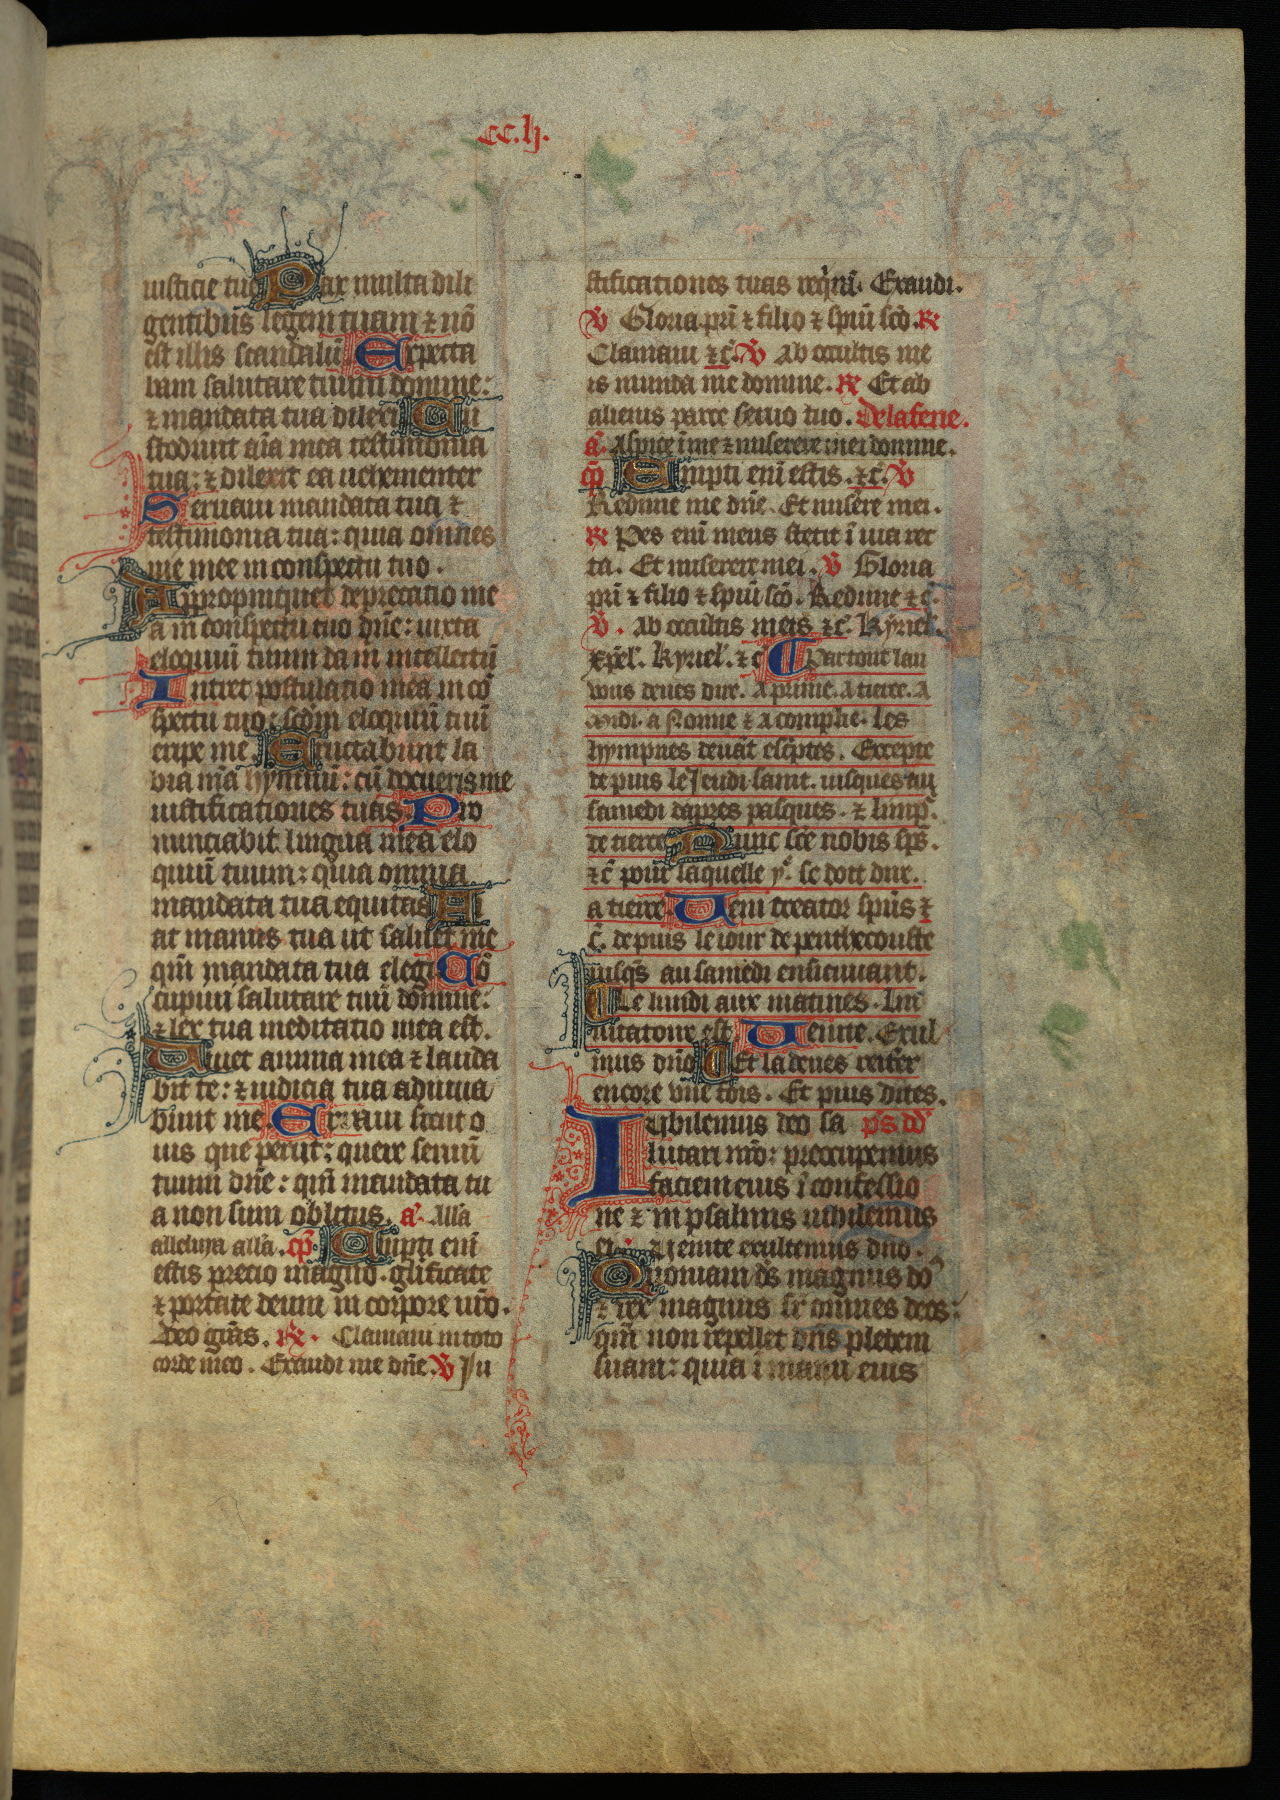 cc.ii.
iusticie tue Pax multa dili
gentibus legem tuam ⁊ nō
est illis scandalū Expecta
bam salutare tuum domine:
⁊ mandata tua dilexi Cu
stodiuit aīa mea testimonia
tua: ⁊ dilexit ea uehementer
Seruaui mandata tua ⁊
testimonia tua: quia omnes
uie mee in conspectu tuo.
Appropinquet deprecatio me
a in conspectu tuo dn̄e: iuxta
eloquiū tuum da m̄ intellectū
Intret postulatio mea in cō
spectu tuo: scd̄m eloquiū tuū
eripe me Eructabunt la
bia mīa hymnū: cū docueris me
iustificationes tuas Pro
nunciabit lingua mea elo
quiū tuum: quia omnia
mandata tua equitas Fi
at manus tua ut saluet me
qm̄ mandata tua elegi Cō
cupiui salutare tuū domine:
⁊ lex tua meditatio mea est.
Viuet anima mea ⁊ lauda
bit te: ⁊ iudicia tua adiuua
bunt me. Erraui sicut o
uis que periit: quere seruū
tuum dn̄e: qm̄ mandata tu
a non sum oblitus. a'. Alla
alleluya alla. cp̄. Empti eni
estis precio magno. glificate
⁊ portate deum in corpore ur̄o.
Deo grās. ℟. Clamaui in toto
corde meo. Exaudi me dn̄e. ℣ Iu
stificationes tuas reqrā. Exaudi.
℣ Gloria prī ⁊ filio ⁊ spiū scō. ℟
Clamaui ⁊c̄. ℣ Ab occultis me
is munda me domine. ℟ Et ab
alienis parce seruo tuo. De la ferie.
a'. Aspice ī me ⁊ miserere mei domine.
cp̄ Empti enī estis. ⁊c̄. ℣
Redime me dn̄e. Et misēre mei.
℟ Pes enī meus stetit ī uia rec
ta. Et miserere mei. ℣ Gloria
prī ⁊ filio ⁊ spiū scō. Redime ⁊c̄.
℣. Ab occultis meis ⁊c̄. Kyriel'.
xp̄el'. kyriel'. ⁊c̄ Par tout lan
uous deues dire. A prime. A tierce. A
midi. a Nonne ⁊ a complie. les
hympnes deuāt escptes. Excepte
depuis le Jeudi saint. iusques au
samedi dapres pasques. ⁊ limpn̄.
de tierce Nunc scē nobis sps̄.
⁊c̄ pour laquelle y'. se doit dire.
a tierce. Ueni creator spūs ⁊
c̄. depuis le iour de penthecouste
iusqs̄ au samedi ensieuuant.
Le lundi aux matines. Lin
uitatoire est Uenite. Exul
mus dn̄o Et la deues reiter
encore vne fois. Et puis dites.
Iubilemus deo sa ps̄. dd̄
lutari nr̄o: preoccupemus
faciem eius ī confessio
ne ⁊ in psalmis iubilemus
ei. Uenite exultemus dno.
Quoniam ds̄ magnus dō
⁊ rex magnus sr̄ omnes deos:
qm̄ non repellet dn̄s plebem
suam: quia ī manu eius